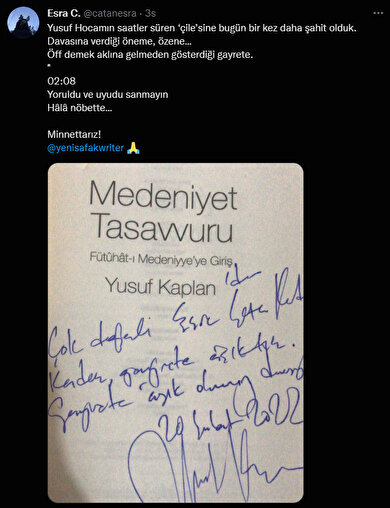 Esra C. @catanesra · 3s
Yusuf Hocamın saatler süren ‘çile’sine bugün bir kez daha şahit olduk.
Davasına verdiği öneme, özene...
Öff demek aklına gelmeden gösterdiği gayrete.
*
02:08
Yoruldu ve uyudu sanmayın
Hâlâ nöbette...
Minnettarız!
@yenisafakwriter 🙏
Medeniyet
Tasavvuru
Fütûhât-ı Medeniyye'ye Giriş
Yusuf Kaplan 'dan
Çok değerli Esra
aşıktır.
aşık
20 Şubat 2022